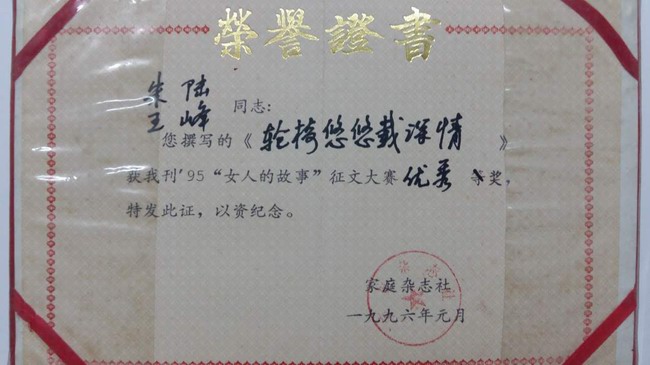 榮譽證書
朱 陆
王 峰 同志：
您撰写的《轮椅悠悠载深情》
获我刊'95“女人的故事”征文大赛优秀等奖，
特发此证，以资纪念。
家庭杂志社
一九九六年元月